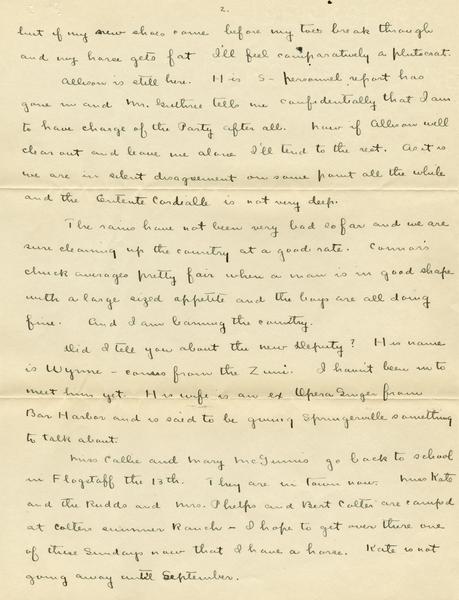 2.
but if my new shoes come before my toes break through
and my horse gets fat I'll feel comparatively a plutocrat.
Allison is still here. His 5- personnel report has
gone in and Mr. Guthrie tells me confidentially that I am
to have charge of the Party after all. Now if Allison will
clear out and leave me alone I'll tend to the rest. As it is
we are in silent disagreement on some point all the while
and the Entente Cordialle is not very deep.
The rains have not been very bad so far and we are
sure cleaning up the country at a good rate. Connor's
chuck averages pretty fair when a man is in good shape
with a large sized appetite and the boys are all doing
fine. And I am learning the country.
Did I tell you about the new Deputy? His name
is Wynne - comes from the Zuni. I havn't been in to
meet him yet. His wife is an ex Opera Singer from
Bar Harbor and is said to be giving Springerville something
to talk about.
Miss Callie and Mary McGinnis go back to school
in Flagstaff the 13th. They are in town now. Miss Kate
and the Rudds and Mrs. Phelps and Bert Colter are camped
at Colters summer Ranch - I hope to get over there one
of these Sundays now that I have a horse. Kate is not
going away until September.